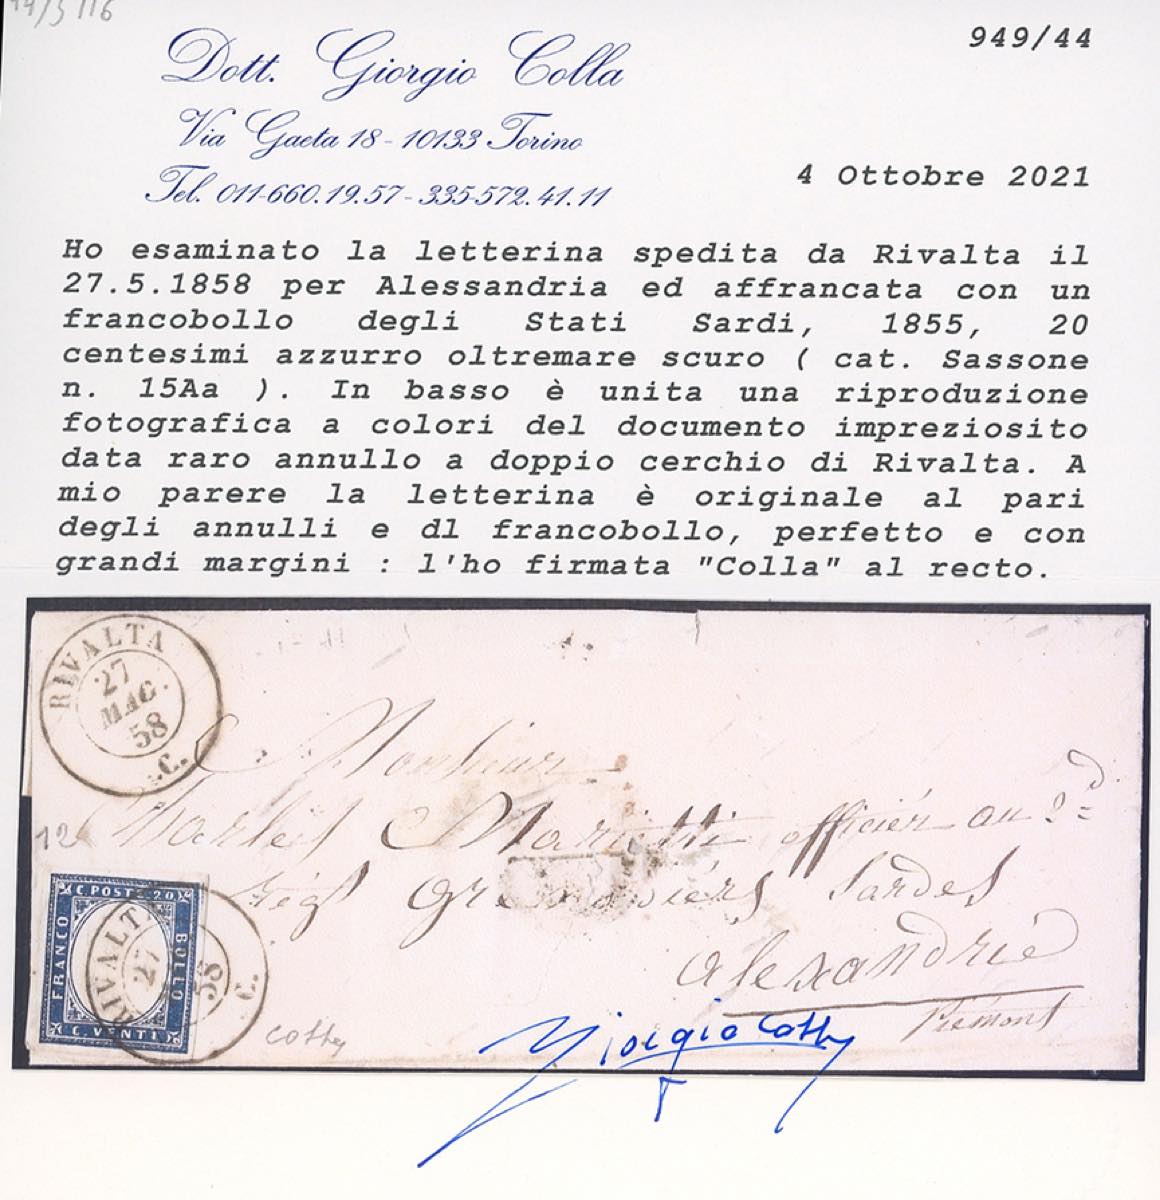 949/44
Dott. Giorgio Colla
Via Gaeta 18 - 10133 Torino
Tel. 011-660.19.57 - 335-572.41.11
4 Ottobre 2021
Ho esaminato la letterina spedita da Rivalta il
27.5.1858 per Alessandria ed affrancata con un
francobollo degli Stati Sardi, 1855, 20
centesimi azzurro oltremare scuro ( cat. Sassone
n. 15Aa ). In basso è unita una riproduzione
fotografica a colori del documento impreziosito
data raro annullo a doppio cerchio di Rivalta. A
mio parere la letterina è originale al pari
degli annulli e dl francobollo, perfetto e con
grandi margini : l'ho firmata "Colla" al recto.
RIVALTA
27
MAG.
58
C.
Monsieur
Mariotti officier au 2d
12
Régt Grenadiérs Sardes
Alexandrie
Piémont
C. POSTE 20
FRANCO
BOLLO
C. VENTI
RIVALTA
27
58
C.
Colla
Giorgio Colla